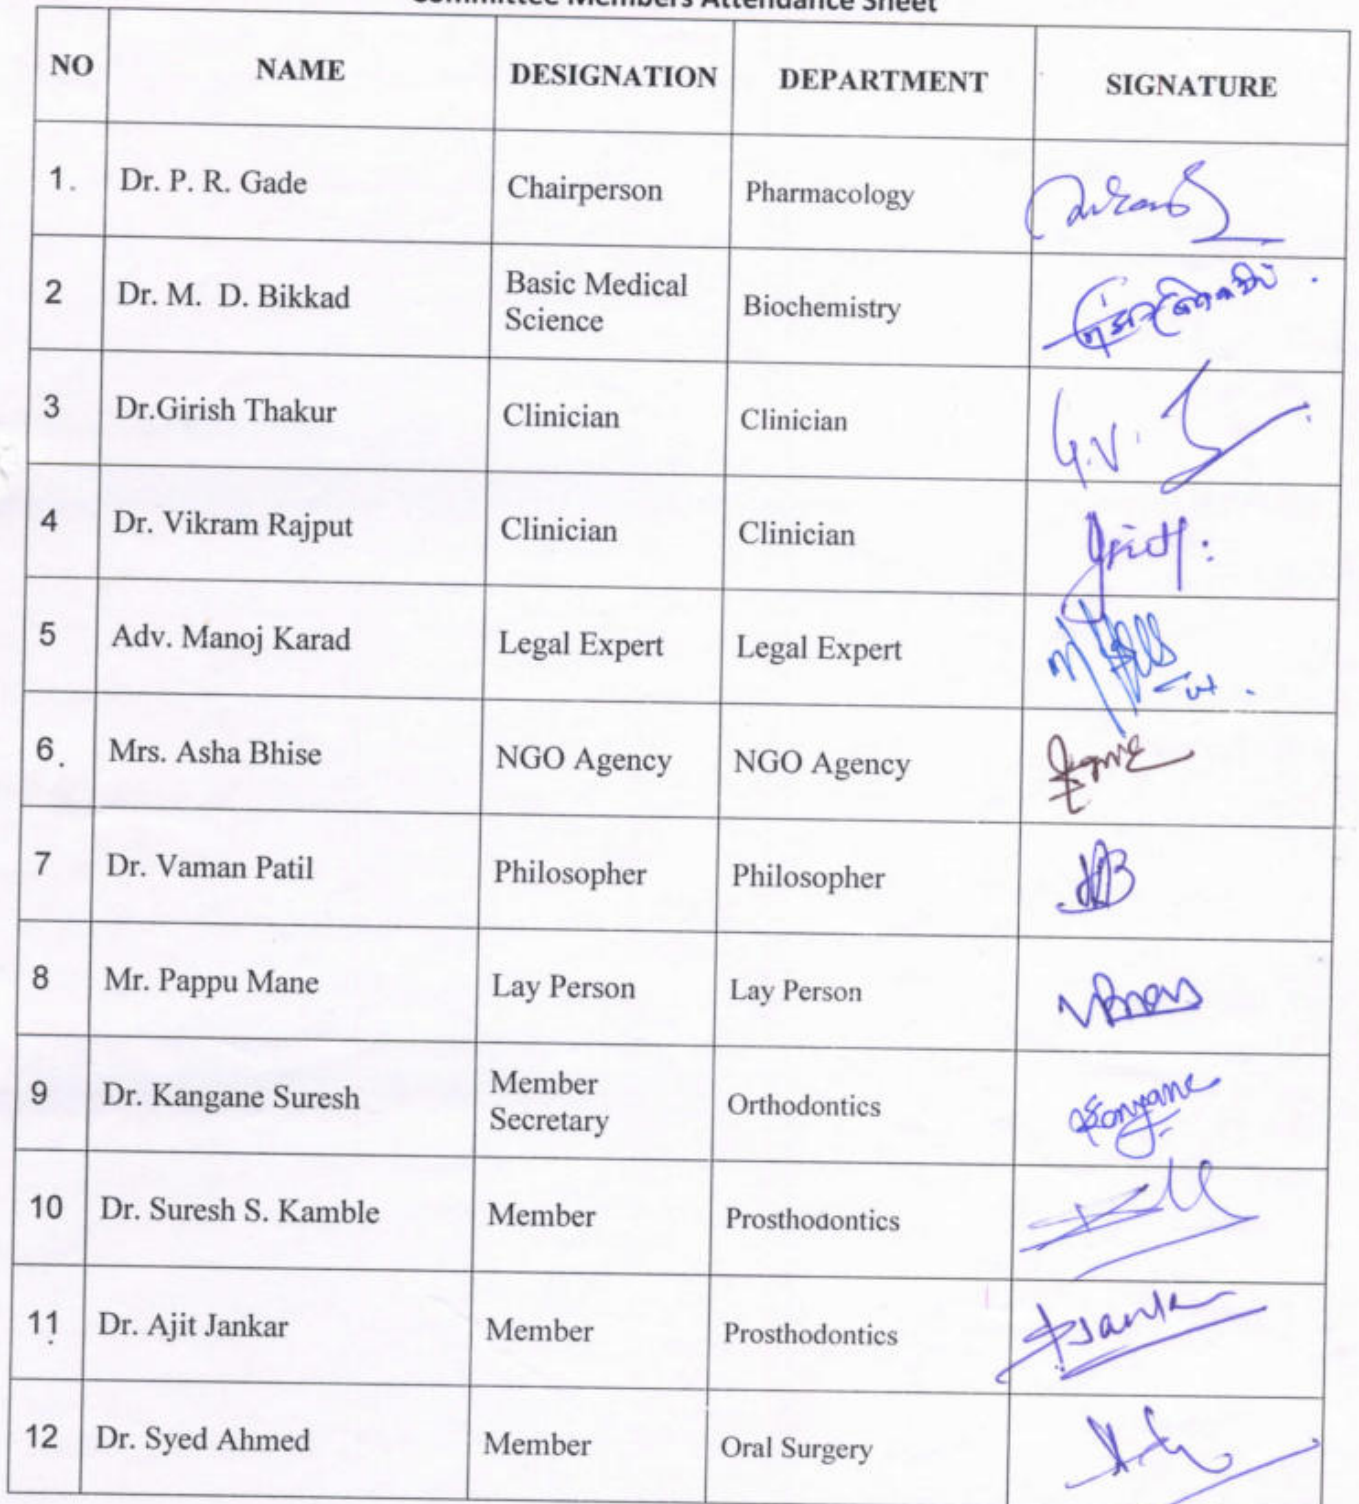 Committee Members Attendance Sheet
NO NAME DESIGNATION DEPARTMENT SIGNATURE
1. Dr. P. R. Gade Chairperson Pharmacology
2 Dr. M. D. Bikkad Basic Medical
Science Biochemistry
3 Dr.Girish Thakur Clinician Clinician G.V.
4 Dr. Vikram Rajput Clinician Clinician
5 Adv. Manoj Karad Legal Expert Legal Expert
6. Mrs. Asha Bhise NGO Agency NGO Agency
7 Dr. Vaman Patil Philosopher Philosopher
8 Mr. Pappu Mane Lay Person Lay Person
9 Dr. Kangane Suresh Member
Secretary Orthodontics Kangane
10 Dr. Suresh S. Kamble Member Prosthodontics
11 Dr. Ajit Jankar Member Prosthodontics
12 Dr. Syed Ahmed Member Oral Surgery